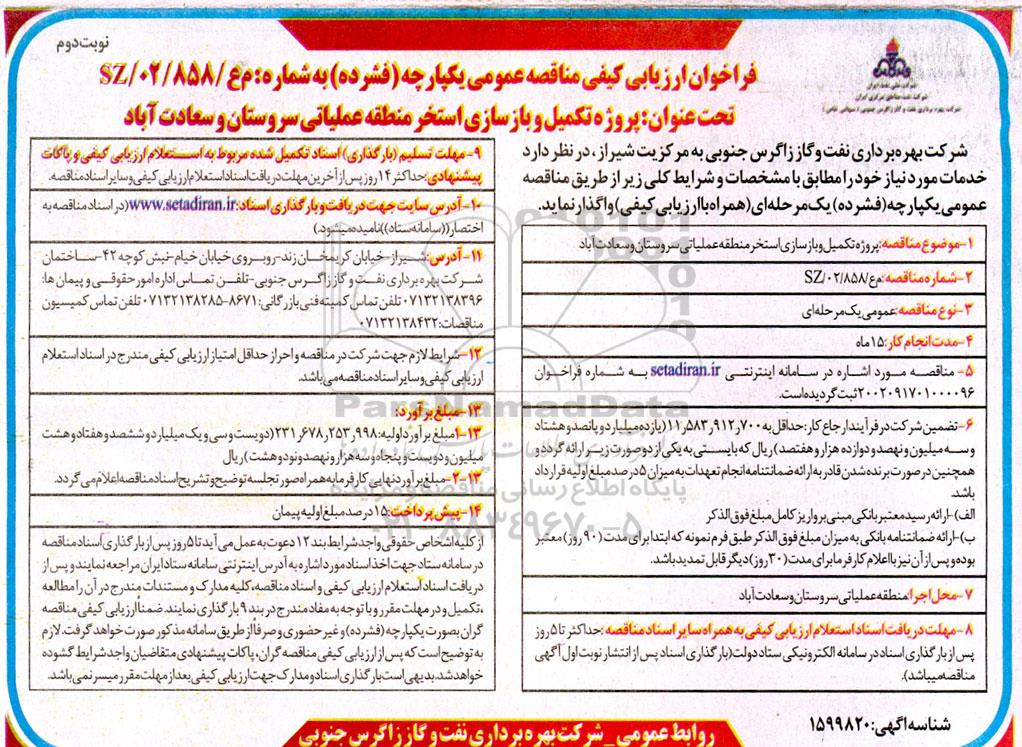 نوبت دوم
شرکت ملی نفت ایران
شرکت نفت مناطق مرکزی ایران
شرکت بهره برداری نفت و گاز زاگرس جنوبی (سهامی خاص)
فراخوان ارزیابی کیفی مناقصه عمومی یکپارچه (فشرده) به شماره: م ع / SZ/۰۲/۸۵۸
تحت عنوان: پروژه تکمیل و بازسازی استخر منطقه عملیاتی سروستان و سعادت آباد
شرکت بهره برداری نفت و گاز زاگرس جنوبی به مرکزیت شیراز، در نظر دارد
خدمات مورد نیاز خود را مطابق با مشخصات و شرایط کلی زیر از طریق مناقصه
عمومی یکپارچه (فشرده) یک مرحله ای (همراه با ارزیابی کیفی) واگذار نماید.
۱- موضوع مناقصه: پروژه تکمیل و بازسازی استخر منطقه عملیاتی سروستان و سعادت آباد
۲- شماره مناقصه: م ع/SZ/۰۲/۸۵۸
۳- نوع مناقصه: عمومی یک مرحله ای
۴- مدت انجام کار: ۱۵ ماه
۵- مناقصه مورد اشاره در سامانه اینترنتی setadiran.ir به شماره فراخوان
۲۰۰۲۰۹۱۷۰۱۰۰۰۰۹۶ ثبت گردیده است.
۶- تضمین شرکت در فرآیند ارجاع کار: حداقل به ۱۱٫۵۸۳٫۹۱۲٫۷۰۰ (یازده میلیارد و پانصد و هشتاد
و سه میلیون و نهصد و دوازده هزار و هفتصد) ریال که بایستی به یکی از دو صورت زیر ارائه گردد و
همچنین در صورت برنده شدن قادر به ارائه ضمانتنامه انجام تعهدات به میزان ۵ درصد مبلغ اولیه قرارداد
باشد.
الف)- ارائه رسید معتبر بانکی مبنی بر واریز کامل مبلغ فوق الذکر
ب)- ارائه ضمانتنامه بانکی به میزان مبلغ فوق الذکر طبق فرم نمونه که ابتدا برای مدت (۹۰ روز) معتبر
بوده و پس از آن نیز با اعلام کارفرما برای مدت (۳۰ روز) دیگر قابل تمدید باشد.
۷- محل اجرا: منطقه عملیاتی سروستان و سعادت آباد
۸- مهلت دریافت اسناد استعلام ارزیابی کیفی به همراه سایر اسناد مناقصه: حداکثر تا ۵ روز
پس از بارگذاری اسناد در سامانه الکترونیکی ستاد دولت (بارگذاری اسناد پس از انتشار نوبت اول آگهی
مناقصه میباشد).
۹- مهلت تسلیم (بارگذاری) اسناد تکمیل شده مربوط به استعلام ارزیابی کیفی و پاکات
پیشنهادی: حداکثر ۱۴ روز پس از آخرین مهلت دریافت اسناد استعلام ارزیابی کیفی و سایر اسناد مناقصه.
۱۰- آدرس سایت جهت دریافت و بارگذاری اسناد: www.setadiran.ir (در اسناد مناقصه به
اختصار ((سامانه ستاد)) نامیده میشود.)
۱۱- آدرس: شیراز- خیابان کریمخان زند- روبروی خیابان خیام- نبش کوچه ۴۲- ساختمان
شرکت بهره برداری نفت و گاز زاگرس جنوبی- تلفن تماس اداره امور حقوقی و پیمان ها:
۰۷۱۳۲۱۳۸۳۹۶ تلفن تماس کمیته فنی بازرگانی: ۸۶۷۱-۰۷۱۳۲۱۳۸۲۸۵ تلفن تماس کمیسیون
مناقصات: ۰۷۱۳۲۱۳۸۴۳۲
۱۲- شرایط لازم جهت شرکت در مناقصه و احراز حداقل امتیاز ارزیابی کیفی مندرج در اسناد استعلام
ارزیابی کیفی و سایر اسناد مناقصه می باشد.
۱۳- مبلغ برآورد:
۱۳-۱ مبلغ برآورد اولیه: ۲۳۱٫۶۷۸٫۲۵۳٫۹۹۸ (دویست و سی و یک میلیارد و ششصد و هفتاد و هشت
میلیون و دویست و پنجاه و سه هزار و نهصد و نود و هشت) ریال
۱۳-۲- مبلغ برآورد نهایی کارفرما به همراه صورتجلسه توضیح و تشریح اسناد مناقصه اعلام می گردد.
۱۴- پیش پرداخت: ۱۵ درصد مبلغ اولیه پیمان
از کلیه اشخاص حقوقی واجد شرایط بند ۱۲ دعوت به عمل می آید تا ۵ روز پس از بارگذاری اسناد مناقصه
در سامانه ستاد جهت اخذ اسناد مورد اشاره به آدرس اینترنتی سامانه ستاد ایران مراجعه نمایند و پس از
دریافت اسناد استعلام ارزیابی کیفی و اسناد مناقصه، کلیه مدارک و مستندات مندرج در آن را مطالعه
، تکمیل و در مهلت مقرر و با توجه به مفاد مندرج در بند ۹ بارگذاری نمایند. ضمناً ارزیابی کیفی مناقصه
گران بصورت یکپارچه (فشرده) و غیر حضوری و صرفاً از طریق سامانه مذکور صورت خواهد گرفت. لازم
به توضیح است که پس از ارزیابی کیفی مناقصه گران، پاکات پیشنهادی متقاضیان واجد شرایط گشوده
خواهد شد. بدیهی است بارگذاری اسناد و مدارک جهت ارزیابی کیفی بعد از مهلت مقرر میسر نمی باشد.
شناسه آگهی: ۱۵۹۹۸۲۰
روابط عمومی _ شرکت بهره برداری نفت و گاز زاگرس جنوبی
ParsNamadData
پایگاه اطلاع رسانی مناقصه و مزایده
۰۲۱-۸۸۳۴۹۶۷۰-۵